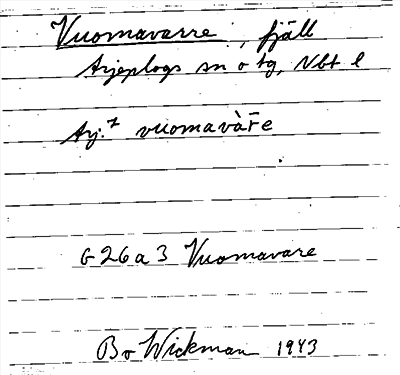 Vuomavarre, fjäll
Arjeplogs sn o tg, Vbt l
Arj.7 vuomavàr̄e
G26a3 Vuomavare
Bo Wickman 1943